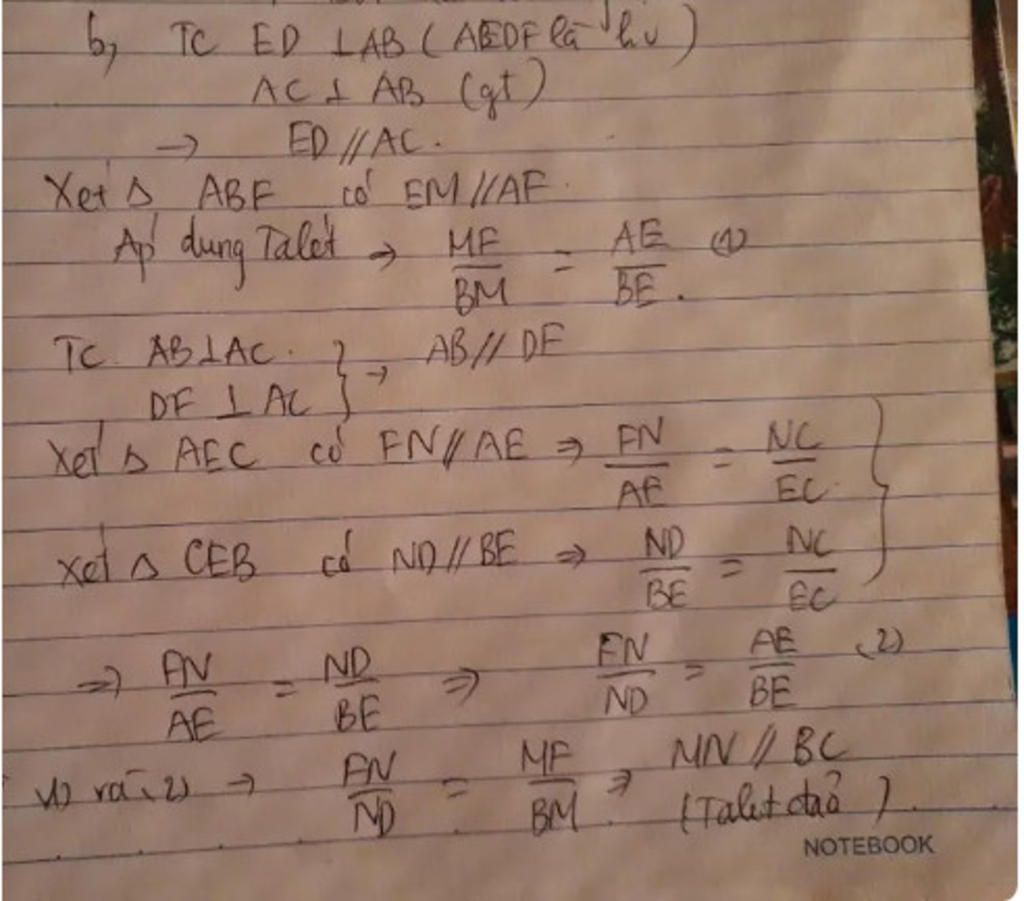 b, TC ED ⊥ AB ( AEDF là hv )
AC ⊥ AB (gt)
→ ED // AC.
Xét Δ ABF có EM // AF.
Áp dụng Talét → MF/BM = AE/BE. (1)
TC. AB ⊥ AC.
DF ⊥ AC } → AB // DF
Xét Δ AEC có FN // AE ⇒ FN/AE = NC/EC.
Xét Δ CEB có ND // BE ⇒ ND/BE = NC/EC }
⇒ FN/AE = ND/BE ⇒ FN/ND = AE/BE (2)
(1) và (2) → FN/ND = MF/BM. ⇒ MN // BC
(Talet đảo ).
NOTEBOOK